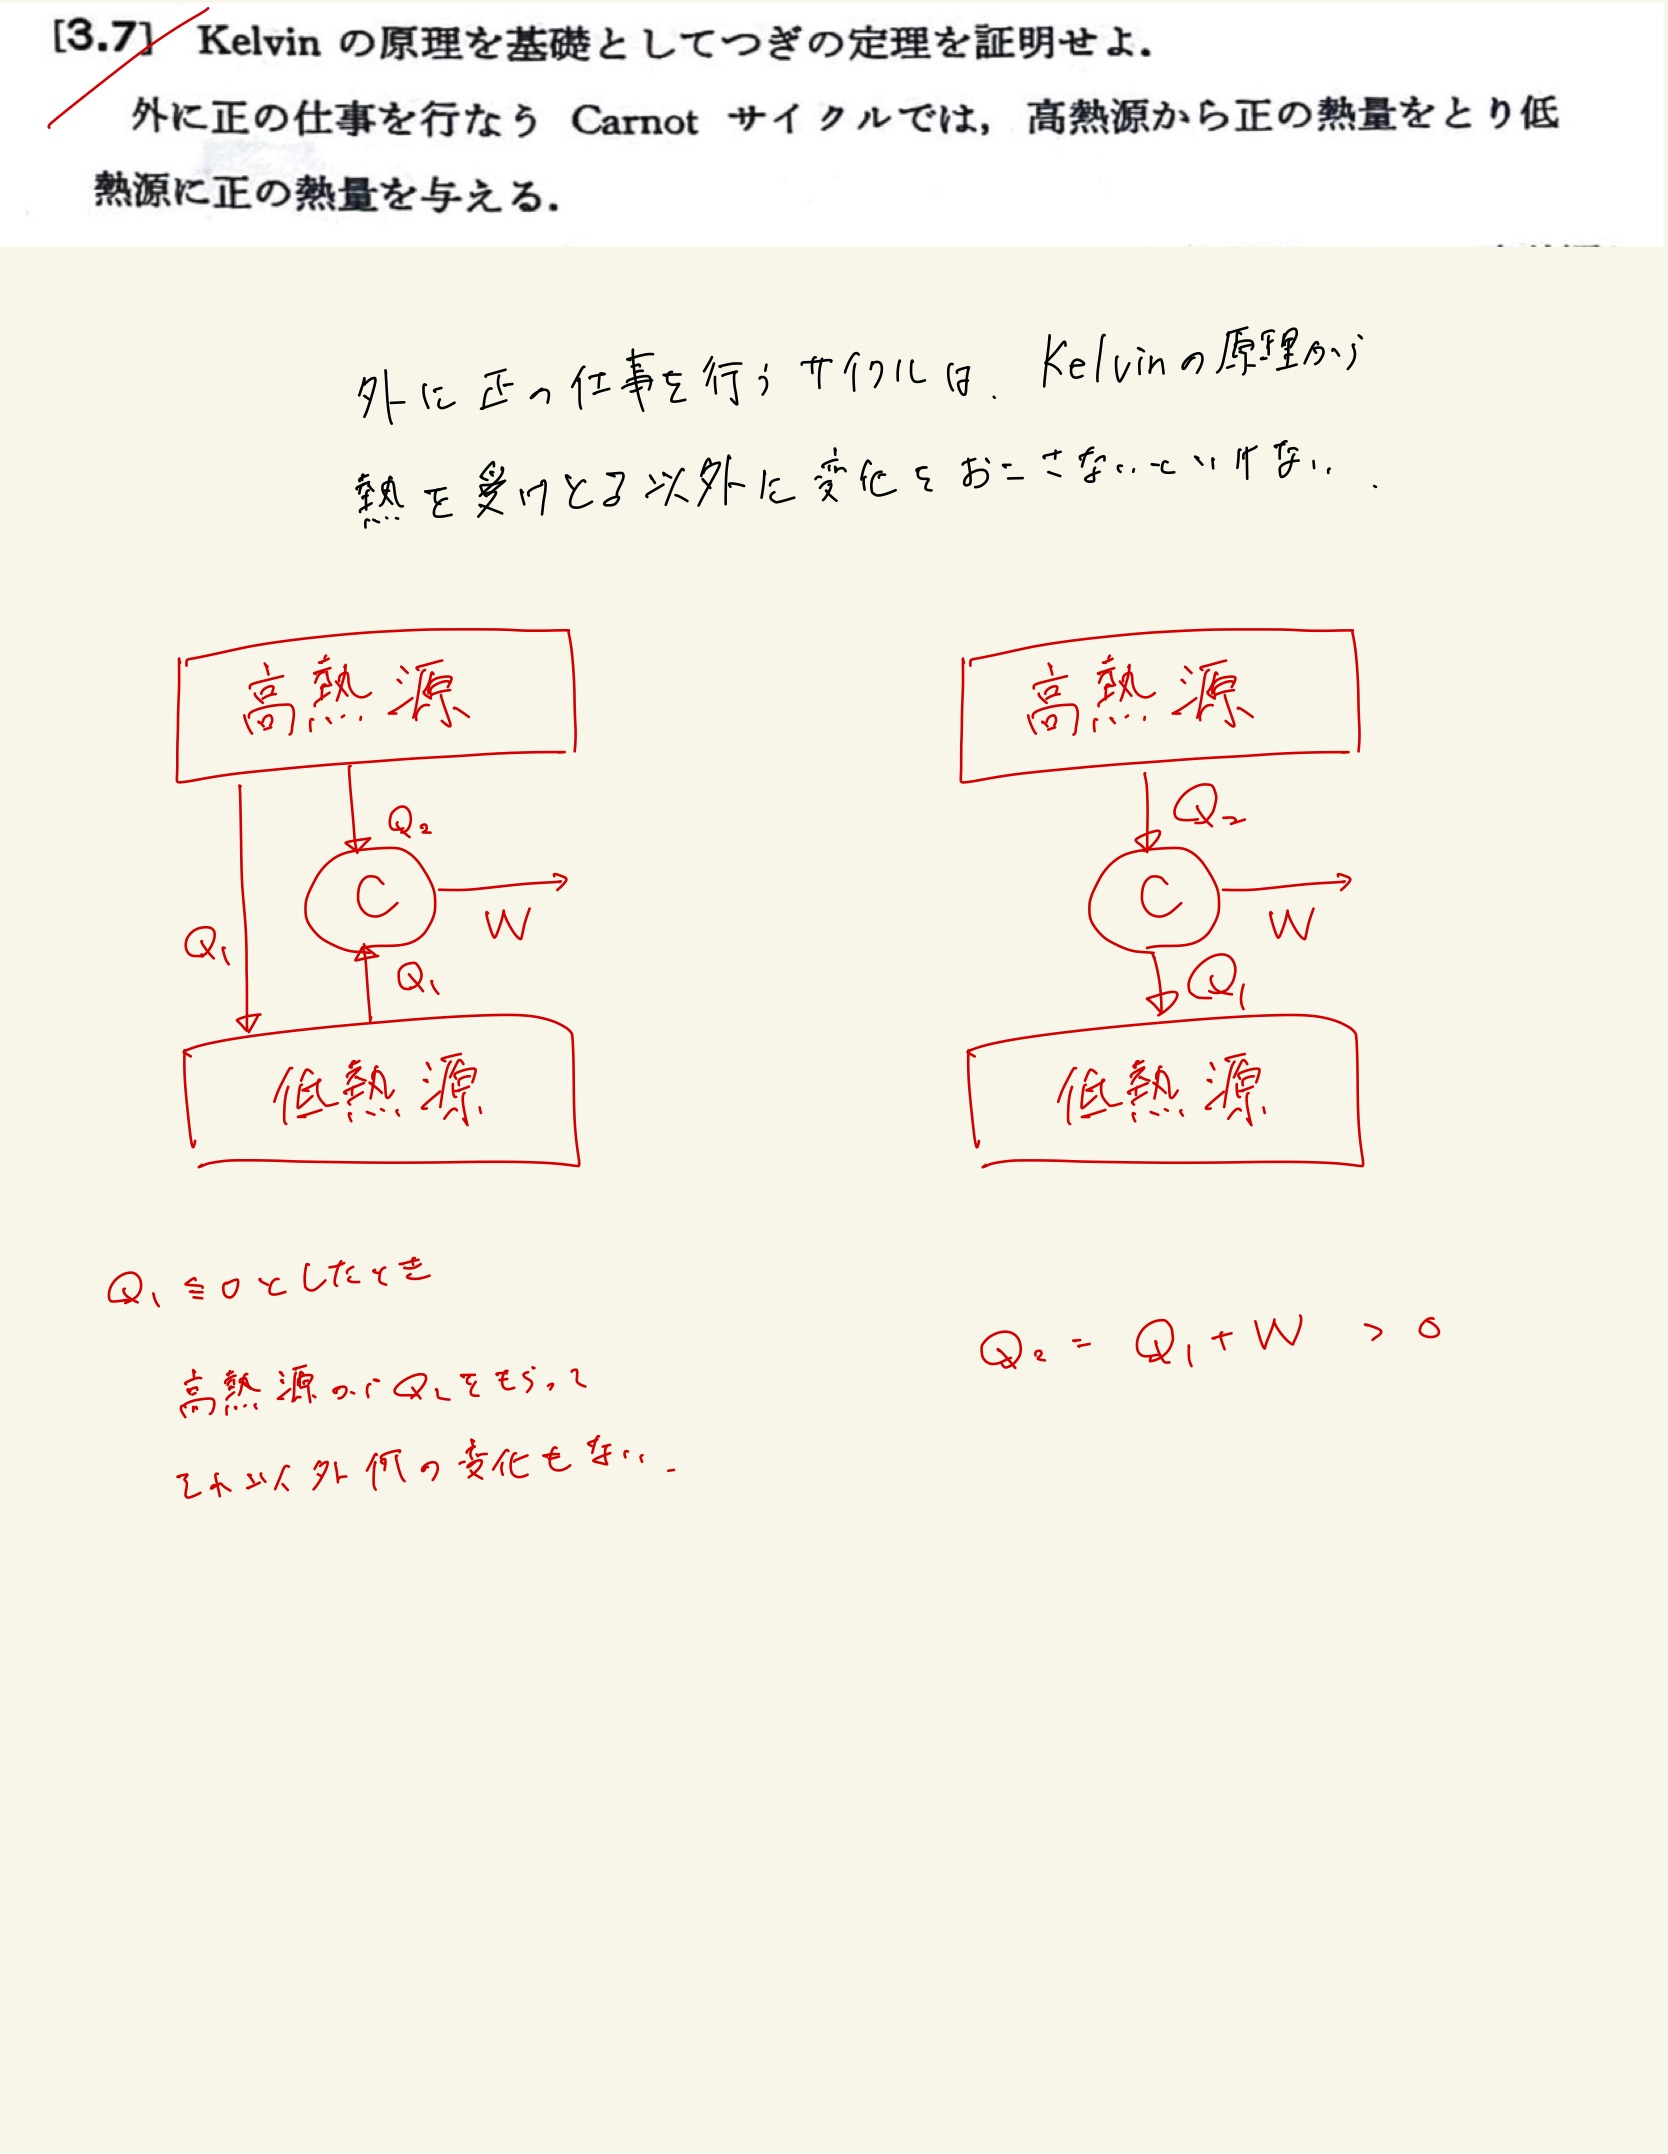 [3.7] Kelvin の原理を基礎としてつぎの定理を証明せよ.
外に正の仕事を行なう Carnot サイクルでは, 高熱源から正の熱量をとり低
熱源に正の熱量を与える.
外に正の仕事を行うサイクルは、Kelvinの原理から
熱を受けとる以外に変化をおこさないといけない.
高熱源
Q₂
C
W
Q₁
Q₁
低熱源
高熱源
Q₂
C
W
Q₁
低熱源
Q₁ ≦ 0 としたとき
高熱源から Q₂をもらって
それ以外何の変化もない.
Q₂ = Q₁ + W > 0